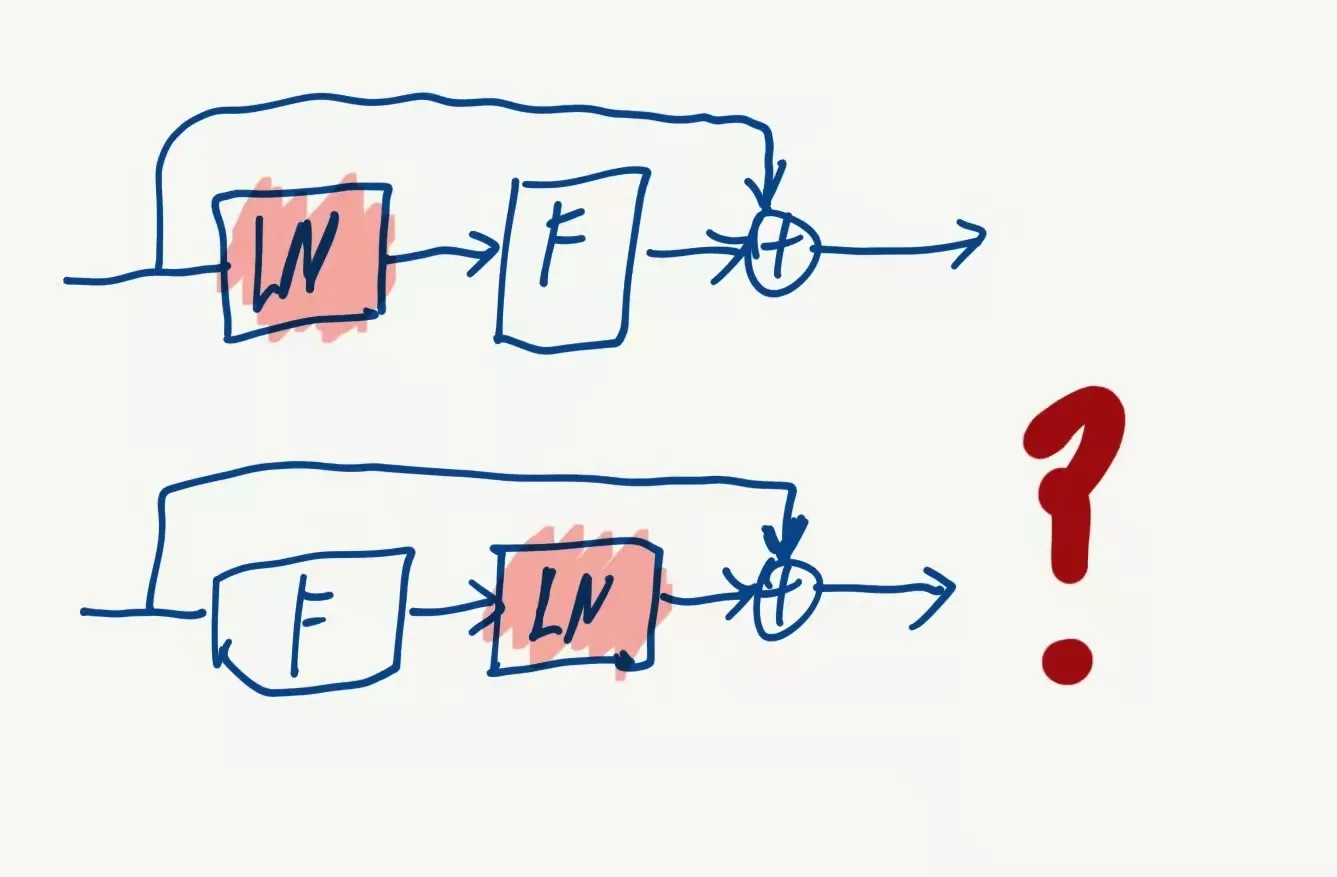 LN F +
F LN +
?